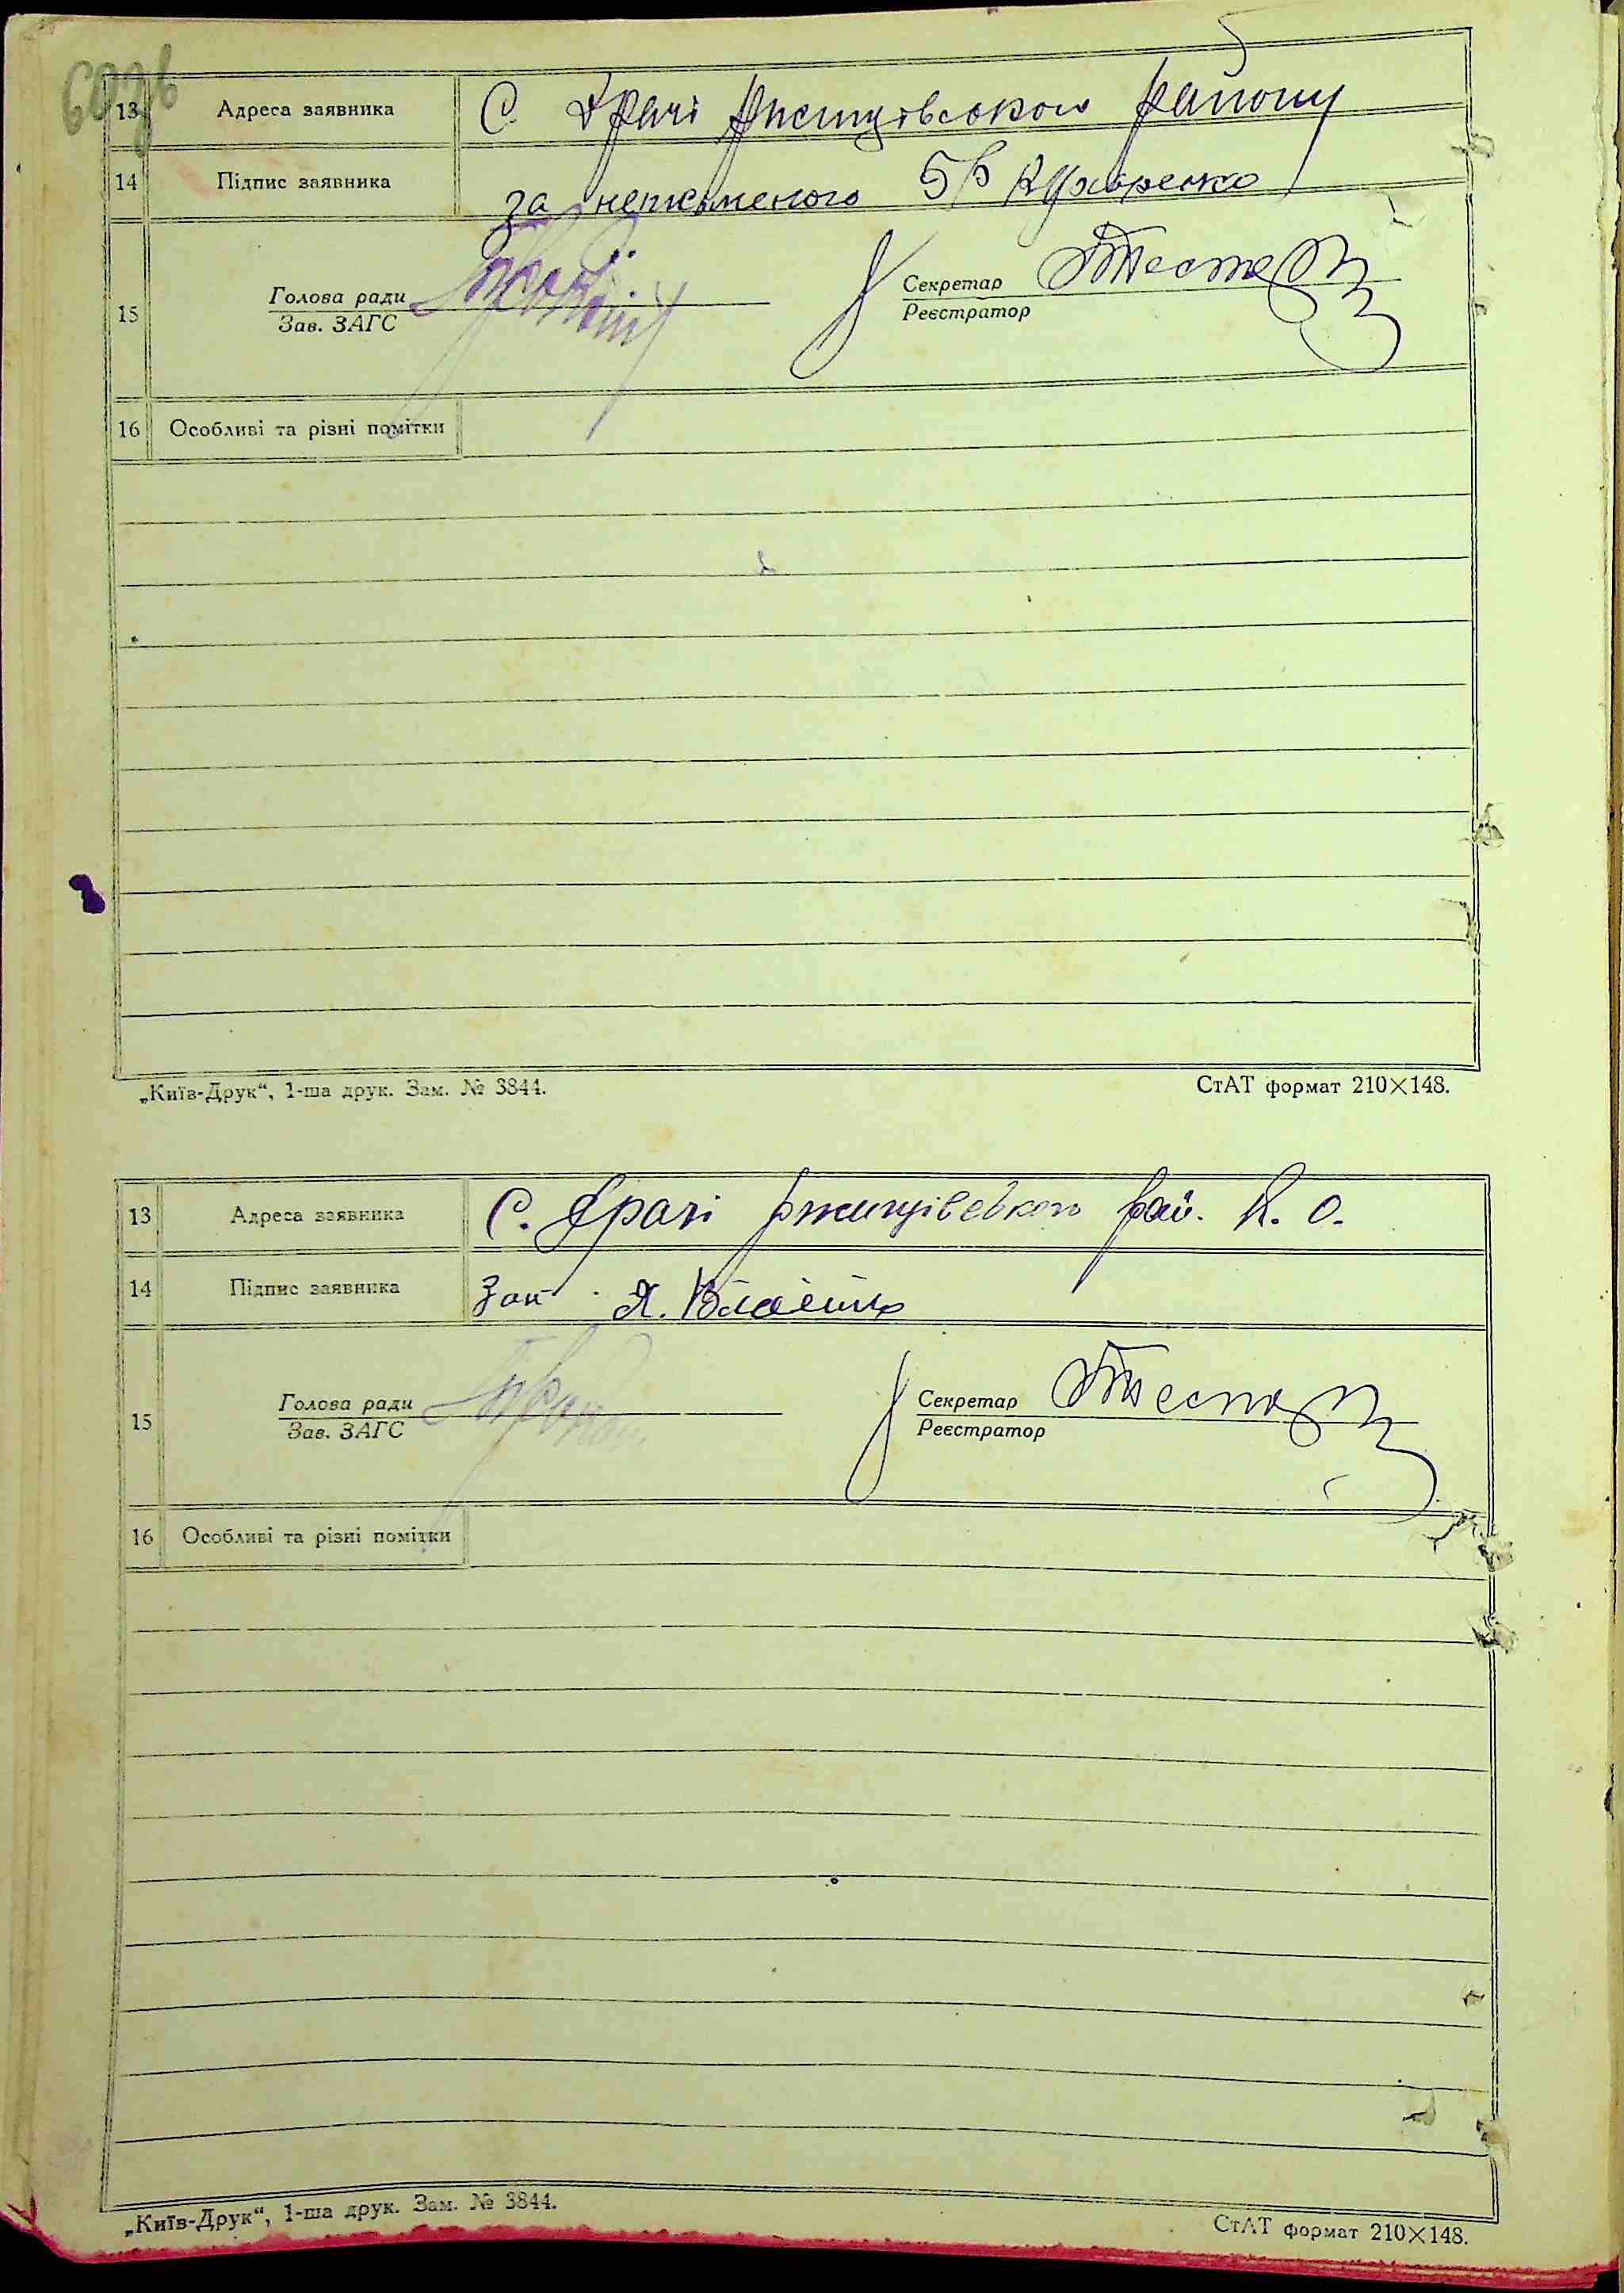 13 Адреса заявника С. Драчі Ржищівського району
14 Підпис заявника за неписьменого Кухаренко
15 Голова ради Секретар
Зав. ЗАГС Реєстратор
16 Особливі та різні помітки
„Київ-Друк“, 1-ша друк. Зам. № 3844. СтАТ формат 210×148.
13 Адреса заявника С. Драчі Ржищівського рай. К. О.
14 Підпис заявника
15 Голова ради Секретар
Зав. ЗАГС Реєстратор
16 Особливі та різні помітки
„Київ-Друк“, 1-ша друк. Зам. № 3844. СтАТ формат 210×148.